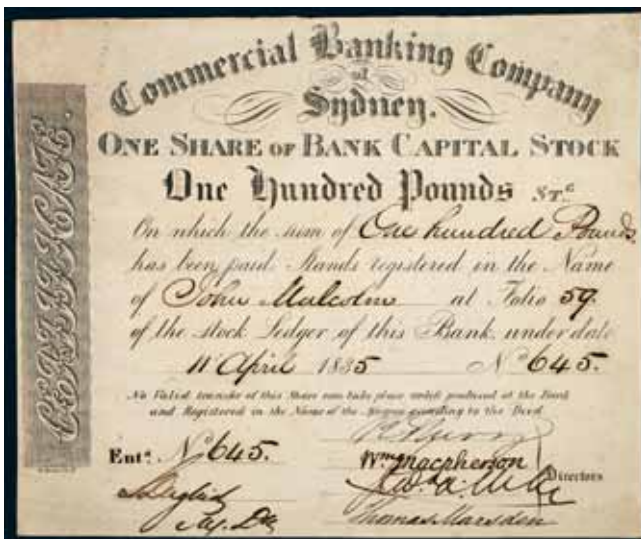 CERTIFICATE.
Commercial Banking Company
of
Sydney.
ONE SHARE OF BANK CAPITAL STOCK
One Hundred Pounds ST.G
On which the sum of One hundred Pounds
has been paid. Stands registered in the Name
of John Malcolm at Folio 59.
of the stock Ledger of this Bank, under date
11 April 1835 No 645.
No Valid transfer of this Share can take place until produced at the Bank
and Registered in the Name of the Assignee according to the Deed
Entd. No 645.
Wm Macpherson
Directors
Thomas Marsden